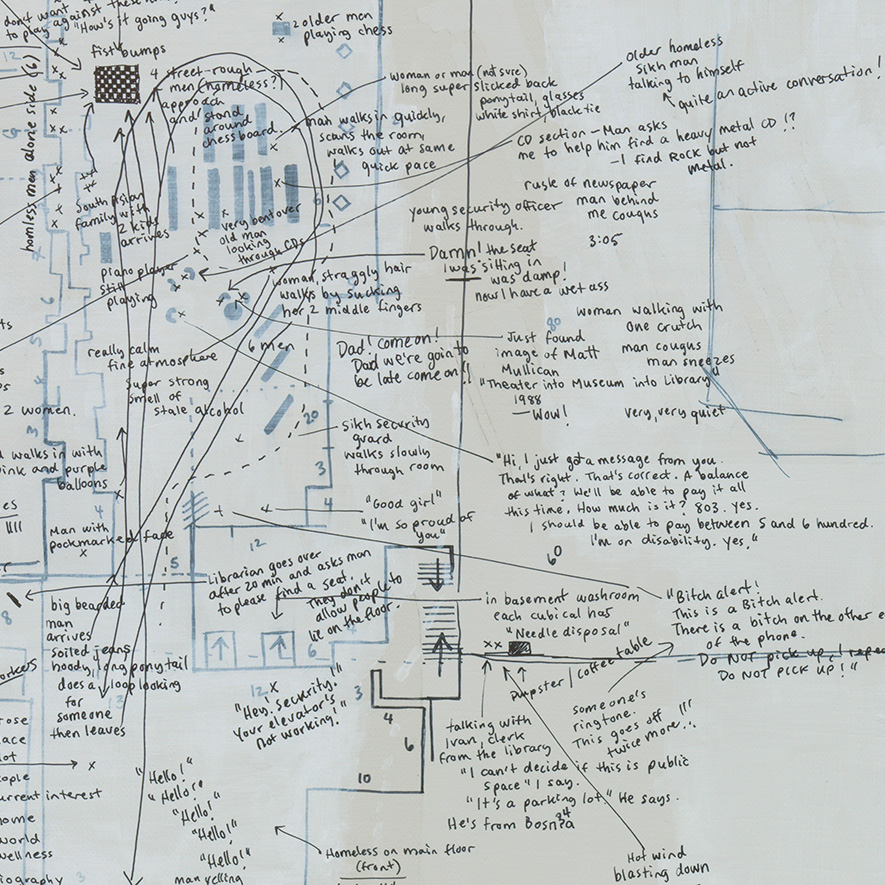 don't want
to play against these
"How's it going guys?"
fist bumps
2 older men
playing chess
12
homless men alone side (6)
4 street-rough
men (homeless?)
approach
and stand
around
chess board.
woman or man (not sure)
long super slicked back
ponytail, glasses
white shirt, black tie
older homeless
sikh man
talking to himself
quite an active conversation!
man walks in quickly,
scans the room,
walks out at same
quick pace
CD section - Man asks
me to help him find a heavy metal CD !?
- I find ROCK but not
metal.
rustle of newspaper
man behind
me coughs
3:05
young security officer
walks through.
South Asian
family with
2 kids
arrives
very bent over
old man
looking
through CDs
Damn! the seat
I was sitting in
was damp!
now I have a wet ass
piano player
still
playing
woman, straggly hair
walks by sucking
her 2 middle fingers
6 men
really calm
fine atmosphere
Super strong
smell of
stale alcohol
Dad! come on!
Dad we're goin to
be late come on!!
Just found
image of Matt
Mullican
"Theater into Museum into Library"
1988
- Wow!
woman walking with
one crutch
man coughs
man sneezes
very, very quiet
2 women.
20
Sikh security
guard
walks slowly
through room
3
4
"Good girl"
"I'm so proud of
you"
"Hi, I just got a message from you.
That's right. That's correct. A balance
of what? We'll be able to pay it all
this time. How much is it? 803. yes.
I should be able to pay between 5 and 6 hundred.
I'm on disability. yes,"
d walks in with
pink and purple
balloons
Man with
pockmarked face
12
5
Librarian goes over
after 20 min and asks man
to please find a seat.
They don't
allow people to
lie on the floor.
8
big bearded
man
arrives
soiled jeans
hoody, long ponytail
does a loop looking
for
someone
then leaves
6
in basement washroom
each cubical has
"Needle disposal"
"Bitch alert!
This is a Bitch alert.
There is a bitch on the other e
of the phone.
Do NOT pick up, I repea
Do NOT PICK UP!"
Dumpster / coffee table
12
"Hey! Security.
Your elevator's
not working!"
3
4
6
10
talking with
Ivan, clerk
from the library
"I can't decide if this is public
space" I say.
"It's a parking lot," He says.
He's from Bosnia
84
someone's
ringtone.
This goes off
twice more...
orkers
rose
lace
lot
ople
urrent interest
home
world
wellness
iography
"Hello!"
"Hello?"
"Hello!"
"Hello!"
"Hello!"
man yelling
Homeless on main floor
(front)
Hot wind
blasting down